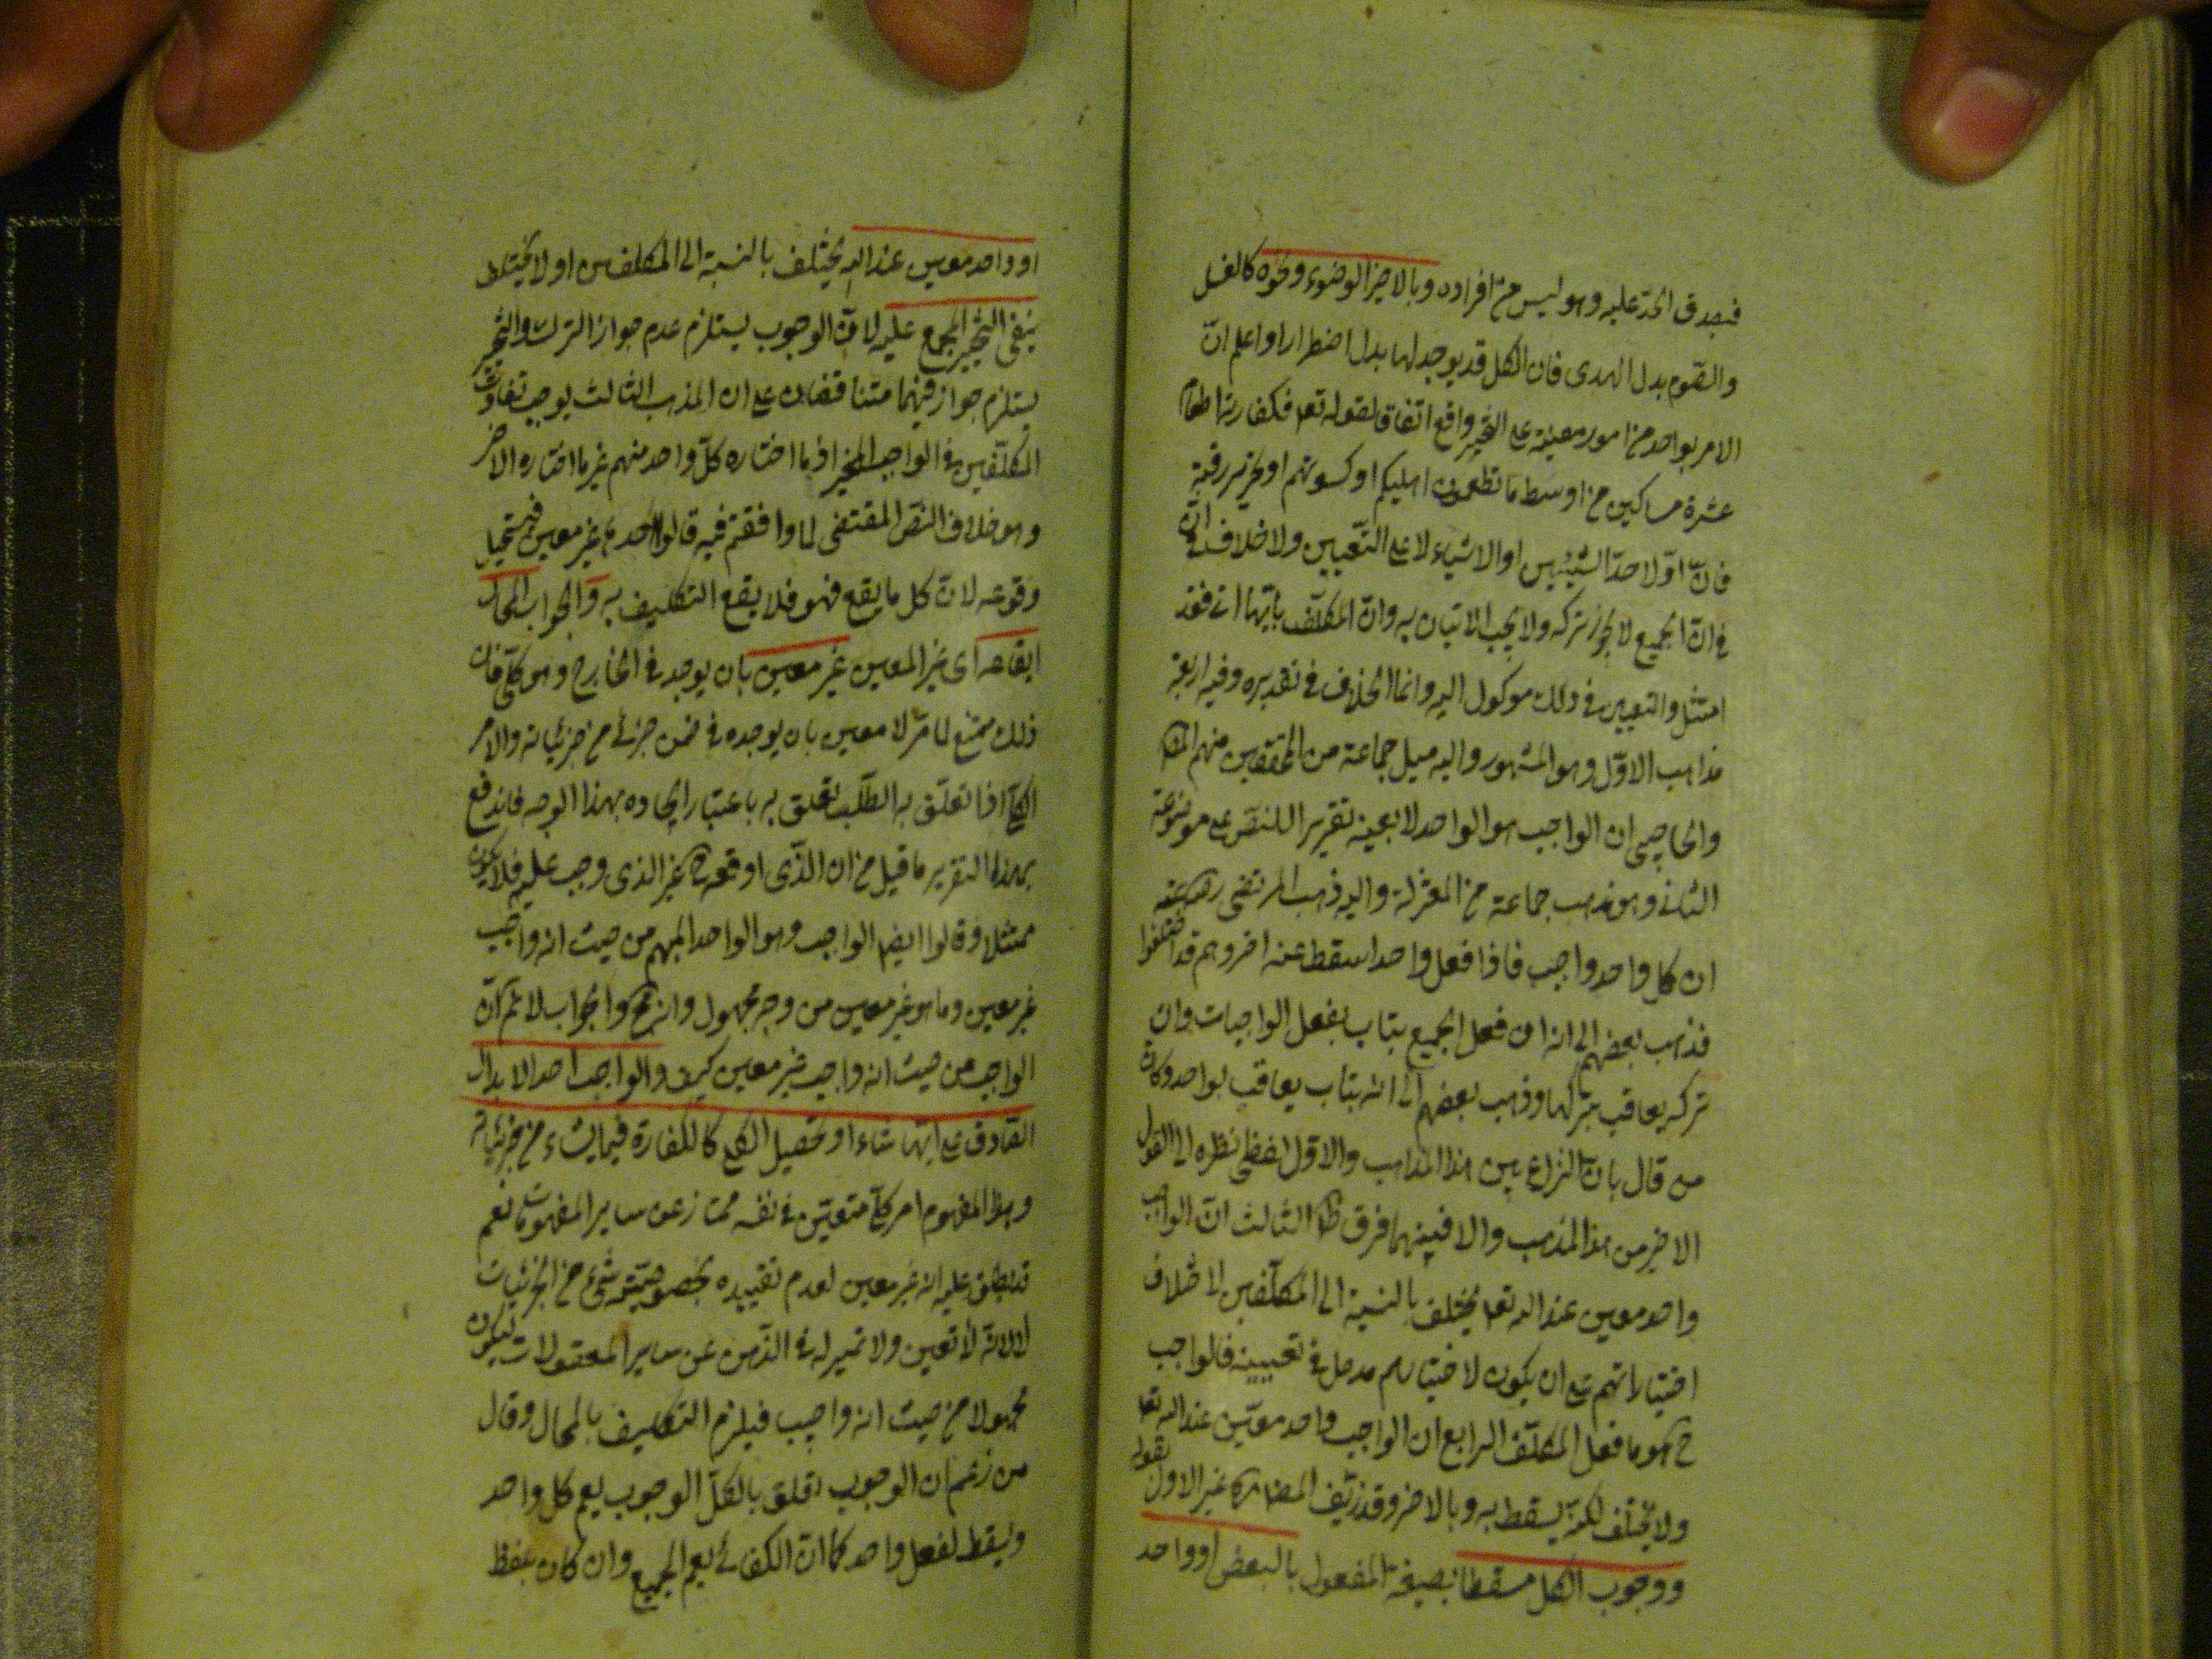 فيصدق الحدّ عليه وهو ليس من افراده وبالاخير الوضوء ونحوه كالغسل
والصّوم بدل الهدى فان الكل قد يوجد لها بدل اضطرارا واعلم انّ
الامر بواحد من امور معينة على التخيير واقع اتفاقا لقوله تعا فكفارته اطعام
عشرة مساكين من اوسط ما تطعمون اهليكم او كسوتهم او تحرير رقبة
فانّ او لاحد الشيئين او الاشياء لا على التّعيين ولا خلاف
في انّ الجميع لا يجوز تركه ولا يجب الاتيان به وانّ المكلّف بايّها اتى فقد
امتثل والتعيين في ذلك موكول اليه وانما الخلاف في تقديره وفيه اربعة
مذاهب الاوّل وهو المشهور واليه ميل جماعة من المحققين منهم المص
والحاجبي ان الواجب هو الواحد لا بعينه تقريرا للنصّ على موضوعة
الثانى وهو مذهب جماعة من المعتزلة واليه ذهب المرتضى رضى عنه
ان كل واحد واجب فاذا فعل واحد اسقط عنه اخر وهم قد اختلفوا
فذهب بعضهم الى انه ان فعل الجميع يثاب بفعل الواجبات وان
تركه يعاقب بتركها وذهب بعضهم الى انه يثاب يعاقب بواحد وكان
من قال بانّ النزاع بين هذا المذاهب والاوّل لفظى نظره الى القول
الاخير من هذا المذهب والا فبينهما فرق ظ الثالث انّ الواجب
واحد معين عند الله تعا يختلف بالنسبة الى المكلّفين لاختلاف
اختياراتهم مع ان يكون لاختيارهم مدخل في تعيينه فالواجب
ح هو ما فعل المكلّف الرابع ان الواجب واحد معيّن عند الله تعا
ولا يختلف لكنّه يسقط به وبالاخر وقد زيّف المص ره غير الاول بقوله
ووجوب الكل مسقطا بصيغة المفعول بالبعض او واحد
او واحد معين عند الله يختلف بالنسبة الى المكلفين او لا يختلف
ينفى التخيير المجمع عليه لانّ الوجوب يستلزم عدم جواز الترك والتخيير
يستلزم جوازه فهما متناقضان على ان المذهب الثالث يوجب تفاوت
المكلّفين في الواجب المخير اذ ما اختاره كلّ واحد منهم غير ما اختاره الاخر
وهو خلاف النصّ المقتضى لما وافقتم فيه قالوا احدها غير معين فيستحيل
وقوعه لانّ كل ما يقع فهو فلا يقع التكليف به والجواب المحال
ايقاعه اى غير المعين غير معين بان يوجد في الخارج وهو كلّى فان
ذلك ممتنع لما مرّ لا معين بان يوجده في ضمن جزئى من جزئياته والامر
الكلّى اذا تعلّق به الطلب تعلق به باعتبار ايجاده بهذا الوجه فاندفع
بهذا التقرير ما قيل من ان الّذى اوقعه غير الذى وجب عليه فلا يكون
ممتثلا وقالوا ايضا الواجب وهو الواحد المبهم من حيث انه واجب
غير معين وما هو غير معين من وجه مجهول والجواب لا نم انّ
الواجب من حيث انه واجب غير معين كيف والواجب احد الابدال
الصّادق على ايّها شاء او تحصيل الكلى كالكفارة فيما يشاء من جزئياته
وهذا المفهوم امر كلّى متعيّن في نفسه ممتاز عن ساير المفهومات نعم
قد يطلق عليه انه غير معين لعدم تقييده بخصوصيّته شئ من الجزئيات
لا لانه لا تعين ولا تميز له في الذّهن عن ساير المعقولات ليكون
مجهولا من حيث انه واجب فيلزم التكليف بالمحال وقال
من زعم ان الوجوب تعلق بالكلّ الوجوب يعم كل واحد
ويسقط لفعل واحد كما انّ الكفائى يعم الجميع وان كان بلفظ